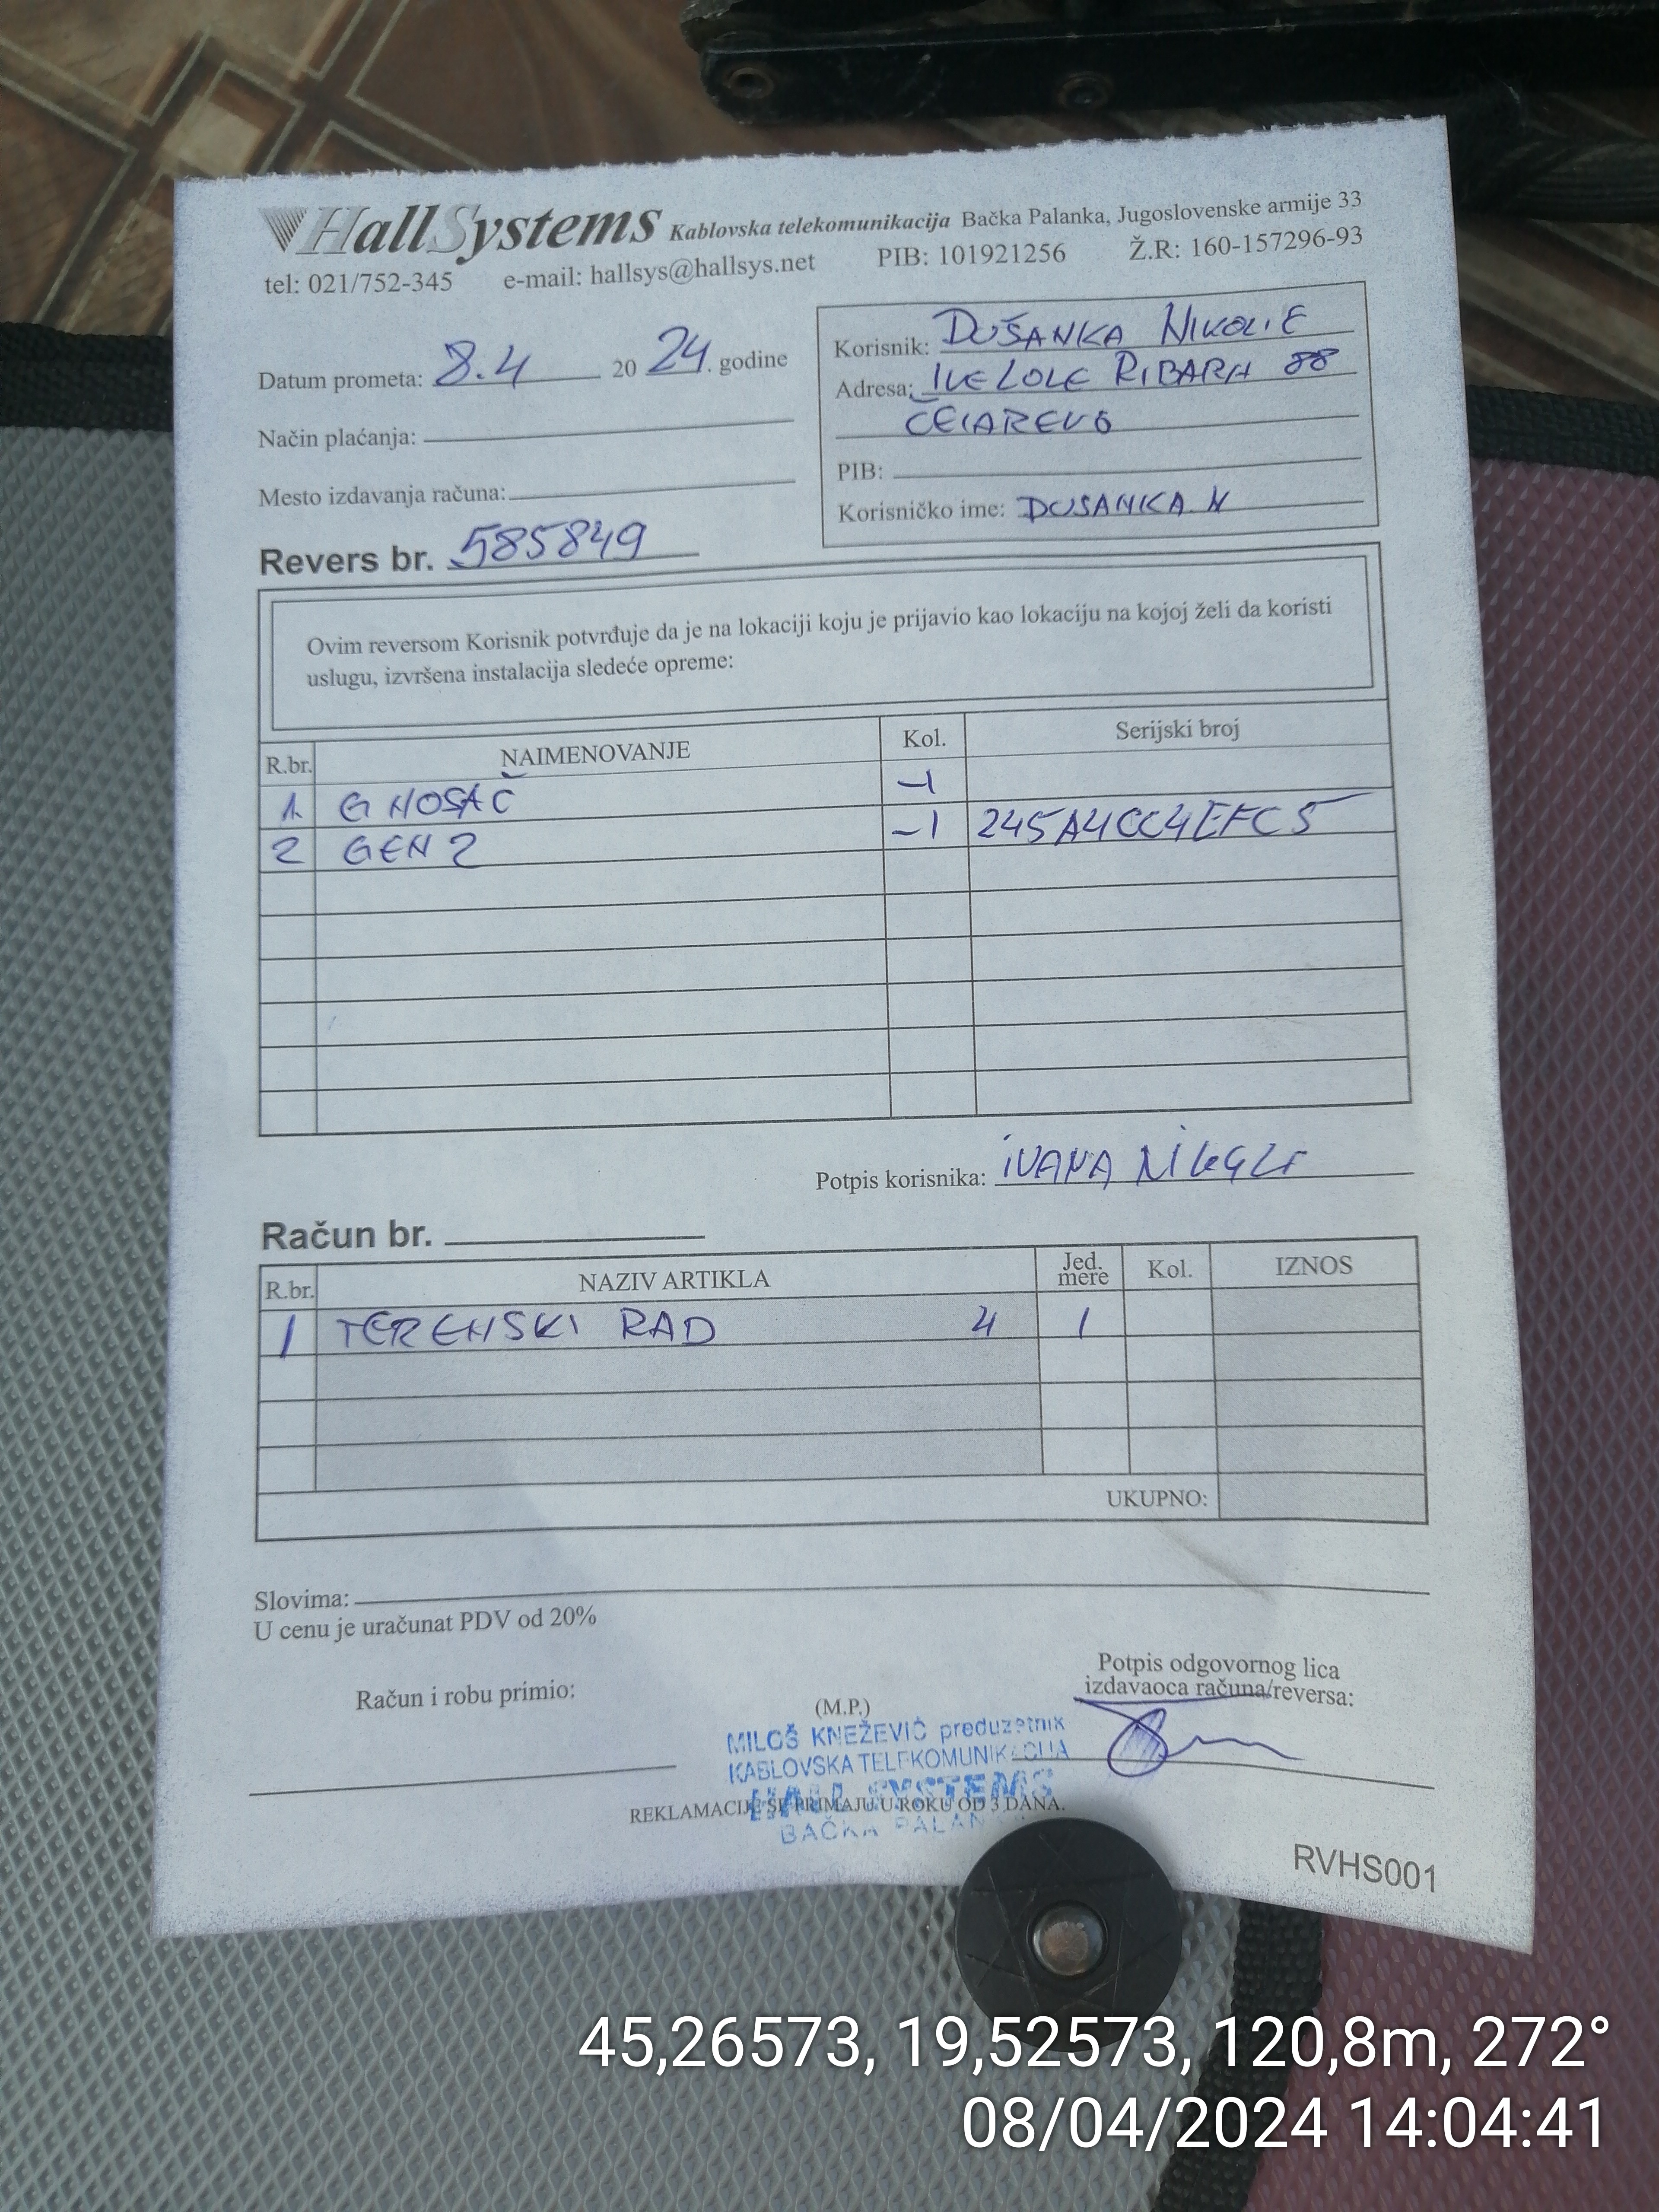 HallSystems Kablovska telekomunikacija Bačka Palanka, Jugoslovenske armije 33
tel: 021/752-345 e-mail: hallsys@hallsys.net PIB: 101921256 Ž.R: 160-157296-93
Datum prometa: 8.4 20 24. godine
Način plaćanja:
Mesto izdavanja računa:
Revers br. 585849
Korisnik: DUŠANKA NIKOLIĆ
Adresa: IVE LOLE RIBARA 88
ČELAREVO
PIB:
Korisničko ime: DUSANKA.N
Ovim reversom Korisnik potvrđuje da je na lokaciji koju je prijavio kao lokaciju na kojoj želi da koristi
uslugu, izvršena instalacija sledeće opreme:
R.br. NAIMENOVANJE Kol. Serijski broj
1. G NOSAČ -1
2 GEN 2 -1 245A4CC4EFC5
Potpis korisnika: IVANA
Račun br.
R.br. NAZIV ARTIKLA Jed. mere Kol. IZNOS
1 TERENSKI RAD 4 1
UKUPNO:
Slovima:
U cenu je uračunat PDV od 20%
Račun i robu primio:
(M.P.)
Potpis odgovornog lica
izdavaoca računa/reversa:
MILOŠ KNEŽEVIĆ preduzetnik
KABLOVSKA TELEKOMUNIKACIJA
HALL SYSTEMS
BAČKA PALANKA
REKLAMACIJE SE PRIMAJU U ROKU OD 3 DANA.
RVHS001
45,26573, 19,52573, 120,8m, 272°
08/04/2024 14:04:41